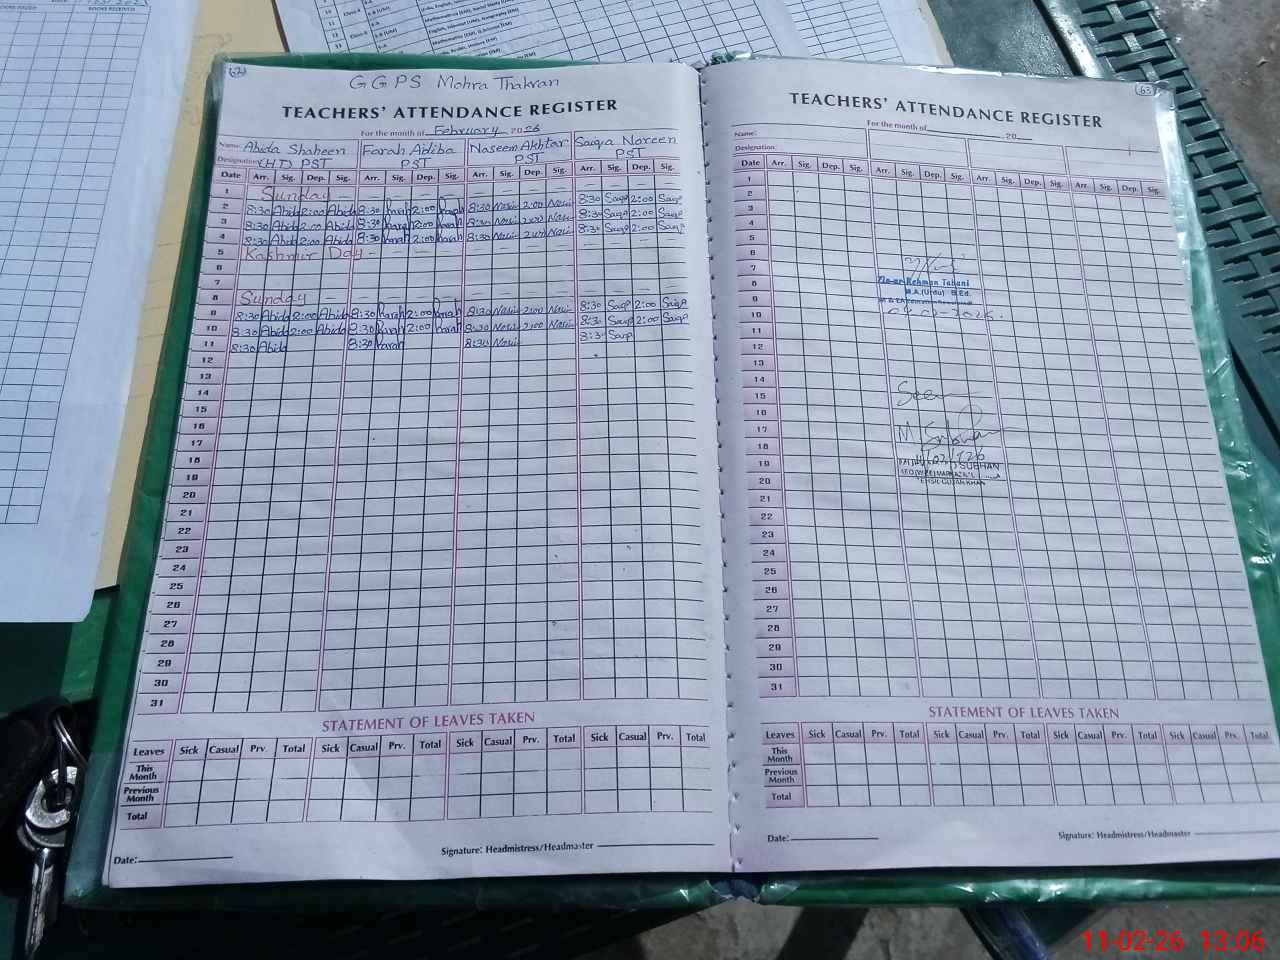 62
GGPS Mohra Thakran
TEACHERS' ATTENDANCE REGISTER
For the month of February 2026
Name: Abida Shaheen Farah Adiba Naseem Akhtar Saiqa Noreen
Designation (HT) PST PST PST PST
Date Arr. Sig. Dep. Sig. Arr. Sig. Dep. Sig. Arr. Sig. Dep. Sig. Arr. Sig. Dep. Sig.
1 Sunday — — — — — — — — — — — — —
2 8:30 Abida 2:00 Abida 8:30 Farah 2:00 Farah 8:30 Nasim 2:00 Nasim 8:30 Saiqa 2:00 Saiqa
3 8:30 Abida 2:00 Abida 8:30 Farah 2:00 Farah 8:30 Nasim 2:00 Nasim 8:30 Saiqa 2:00 Saiqa
4 8:30 Abida 2:00 Abida 8:30 Farah 2:00 Farah 8:30 Nasim 2:00 Nasim 8:30 Saiqa 2:00 Saiqa
5 Kashmir Day — — — — — — — — — — —
6
7
8 Sunday — — — — — — — — — — — — —
9 8:30 Abida 2:00 Abida 8:30 Farah 2:00 Farah 8:30 Nasim 2:00 Nasim 8:30 Saiqa 2:00 Saiqa
10 8:30 Abida 2:00 Abida 8:30 Farah 2:00 Farah 8:30 Nasim 2:00 Nasim 8:30 Saiqa 2:00 Saiqa
11 8:30 Abida 8:30 Farah 8:30 Nasim 8:30 Saiqa
12
13
14
15
16
17
18
19
20
21
22
23
24
25
26
27
28
29
30
31
STATEMENT OF LEAVES TAKEN
Leaves Sick Casual Prv. Total Sick Casual Prv. Total Sick Casual Prv. Total Sick Casual Prv. Total
This Month
Previous Month
Total
Date:
Signature: Headmistress/Headmaster
63
TEACHERS' ATTENDANCE REGISTER
For the month of 20
Name:
Designation
Date Arr. Sig. Dep. Sig. Arr. Sig. Dep. Sig. Arr. Sig. Dep. Sig. Arr. Sig. Dep. Sig.
1
2
3
4
5
6
7
8 Rehman
9 M.A.(Urdu) B.Ed.
10
11
12
13
14
15 Seen
16
17 M. Subhan
18 11/02/26
19 SUBHAN
20 TEHSIL GUJAR KHAN
21
22
23
24
25
26
27
28
29
30
31
STATEMENT OF LEAVES TAKEN
Leaves Sick Casual Prv. Total Sick Casual Prv. Total Sick Casual Prv. Total Sick Casual Prv. Total
This Month
Previous Month
Total
Date:
Signature: Headmistress/Headmaster
11-02-26 13:06